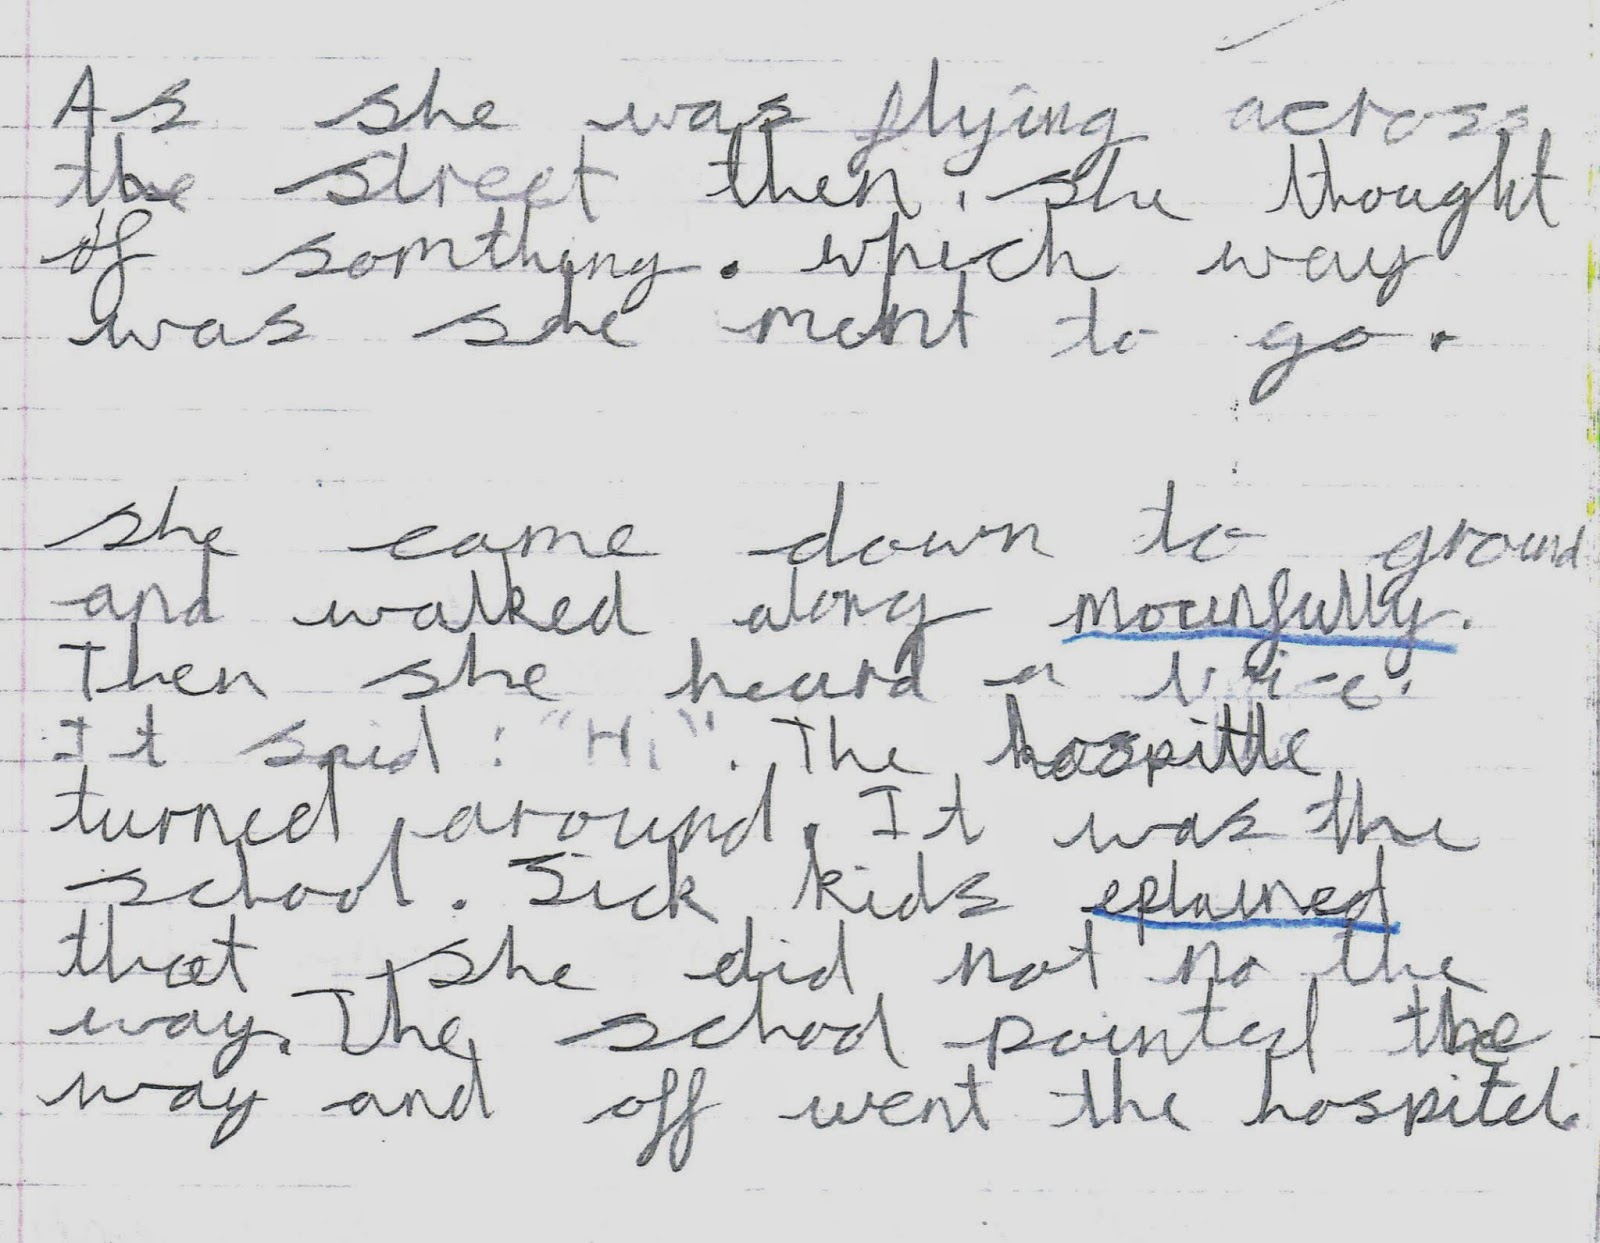 As she was flying across
the street then, she thought
of somthing. which way
was she ment to go.
she came down to ground
and walked along mournfully.
Then she heard a voice.
It said : "Hi". The hospittle
turned around. It was the
school. Sick kids eplained
that she did not no the
way. The school pointed the
way and off went the hospitel.